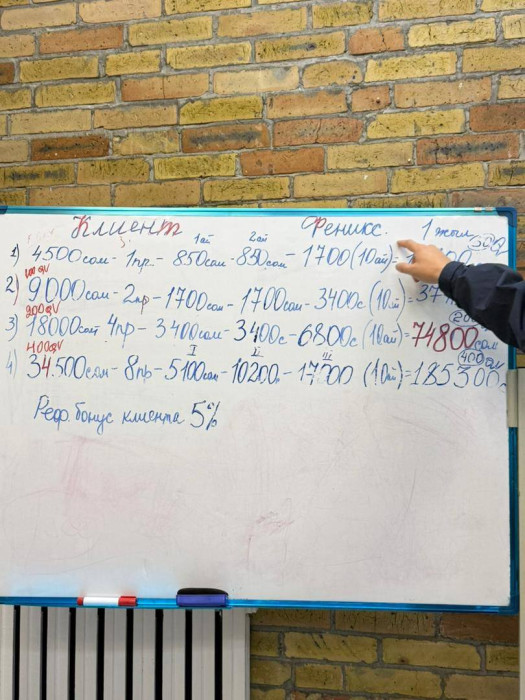 Клиент Феникс. 1 жыл
1ай 2ай
1) 4500сом - 1пр - 850сом - 850сом - 1700 (10ай) =
100QV
2) 9000сом - 2пр - 1700сом - 1700сом - 3400с (10ай) =
200QV
3) 18000сом 4пр - 3400сом - 3400с - 6800с (10ай) = 74800сом
400QV I II III 400
4) 34.500сом - 8пр - 5100сом - 10200 - 17000 (10ай) = 185300
Реф. бонус клиента 5%